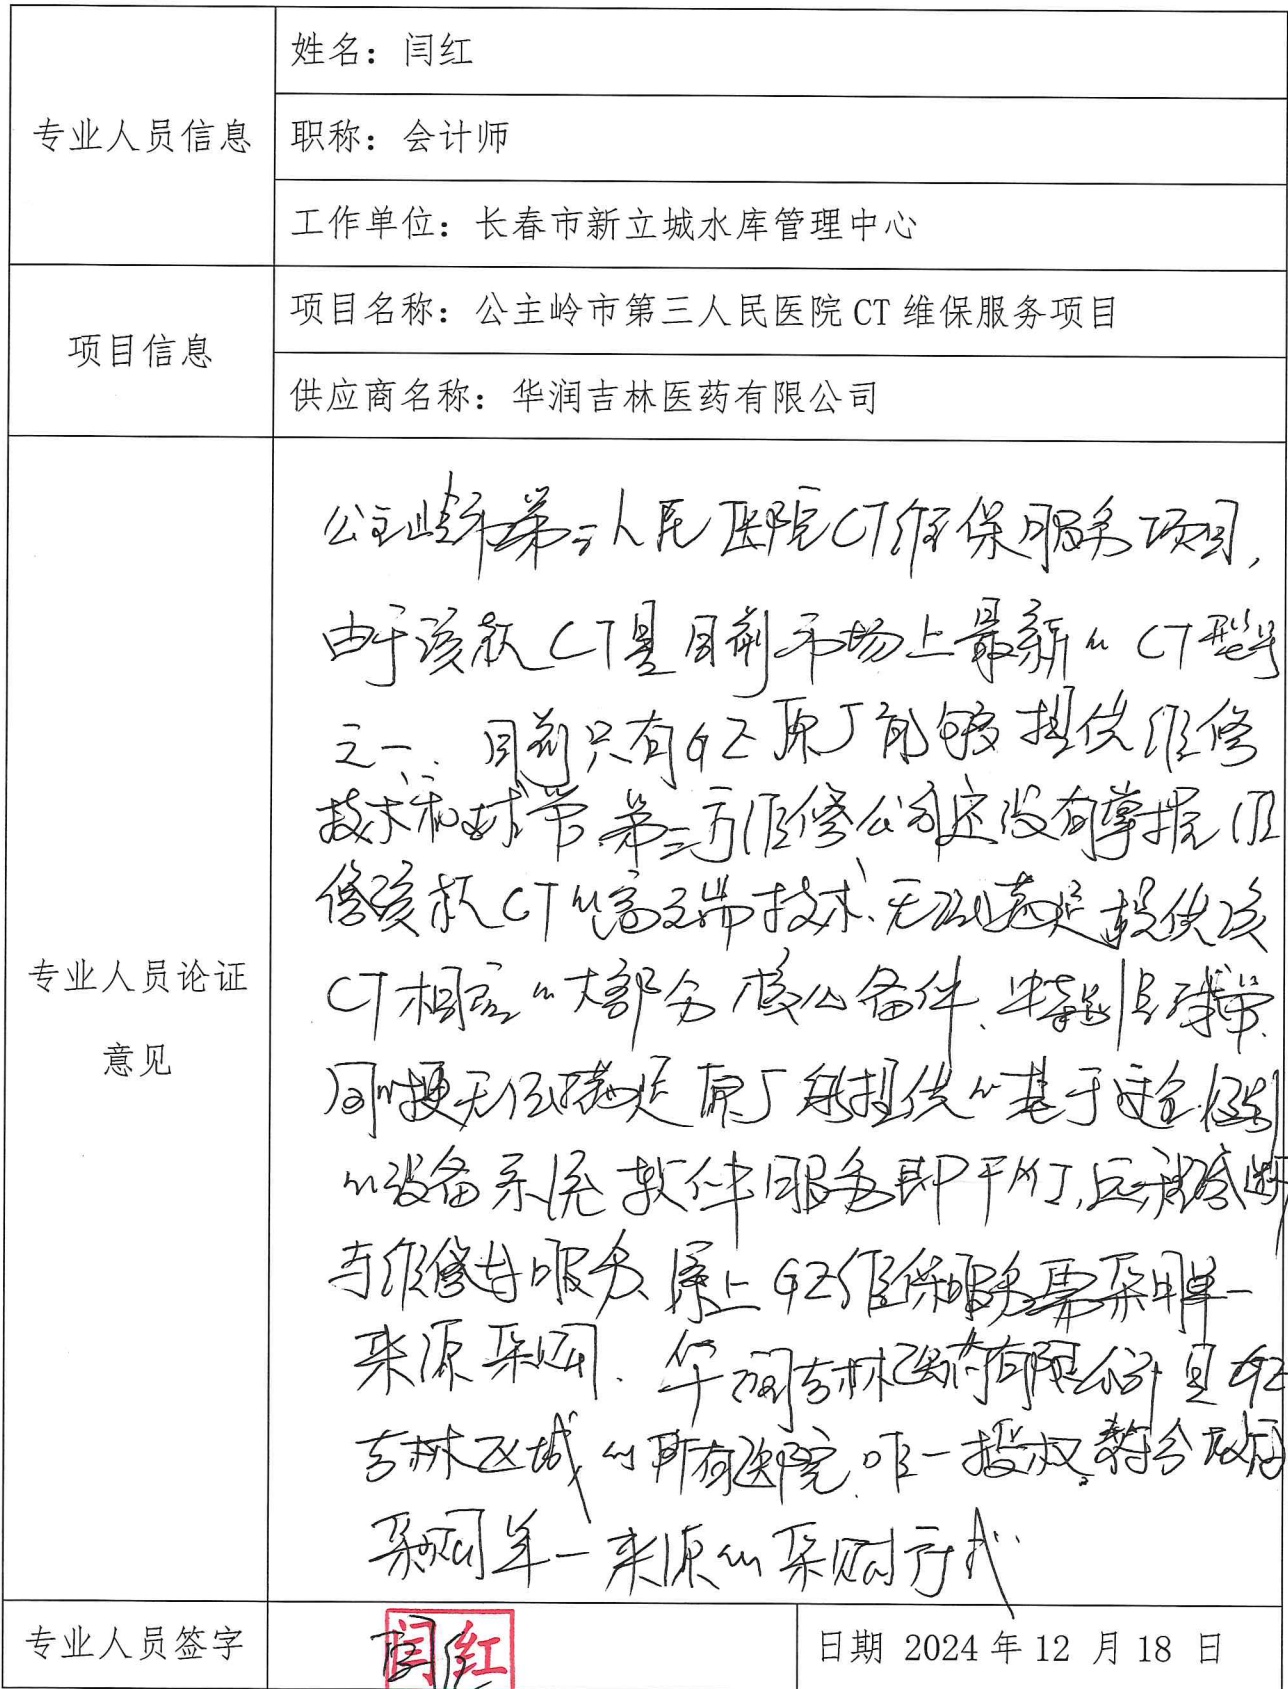 专业人员信息
姓名：闫红
职称：会计师
工作单位：长春市新立城水库管理中心
项目信息
项目名称：公主岭市第三人民医院 CT 维保服务项目
供应商名称：华润吉林医药有限公司
专业人员论证
意见
公主岭市第三人民医院CT维保服务项目，
由于该款CT是目前市场上最新的CT型号
之一、目前只有GE原厂能够提供维修
技术和球管 第三方维修公司还没有掌握维
修该款CT的高端技术、无法满足提供该
CT相应的大部分核心备件、特别是球管
同时更无法满足原厂能提供的基于安全
的设备系统软件服务即 远程诊断
与维修等服务 综上GE维保服务需采用单一
来源采购. 华润吉林医药有限公司是GE
吉林区域的所有医院唯一授权，符合政府
采购单一来源的采购方式
专业人员签字
闫红
日期 2024 年 12 月 18 日